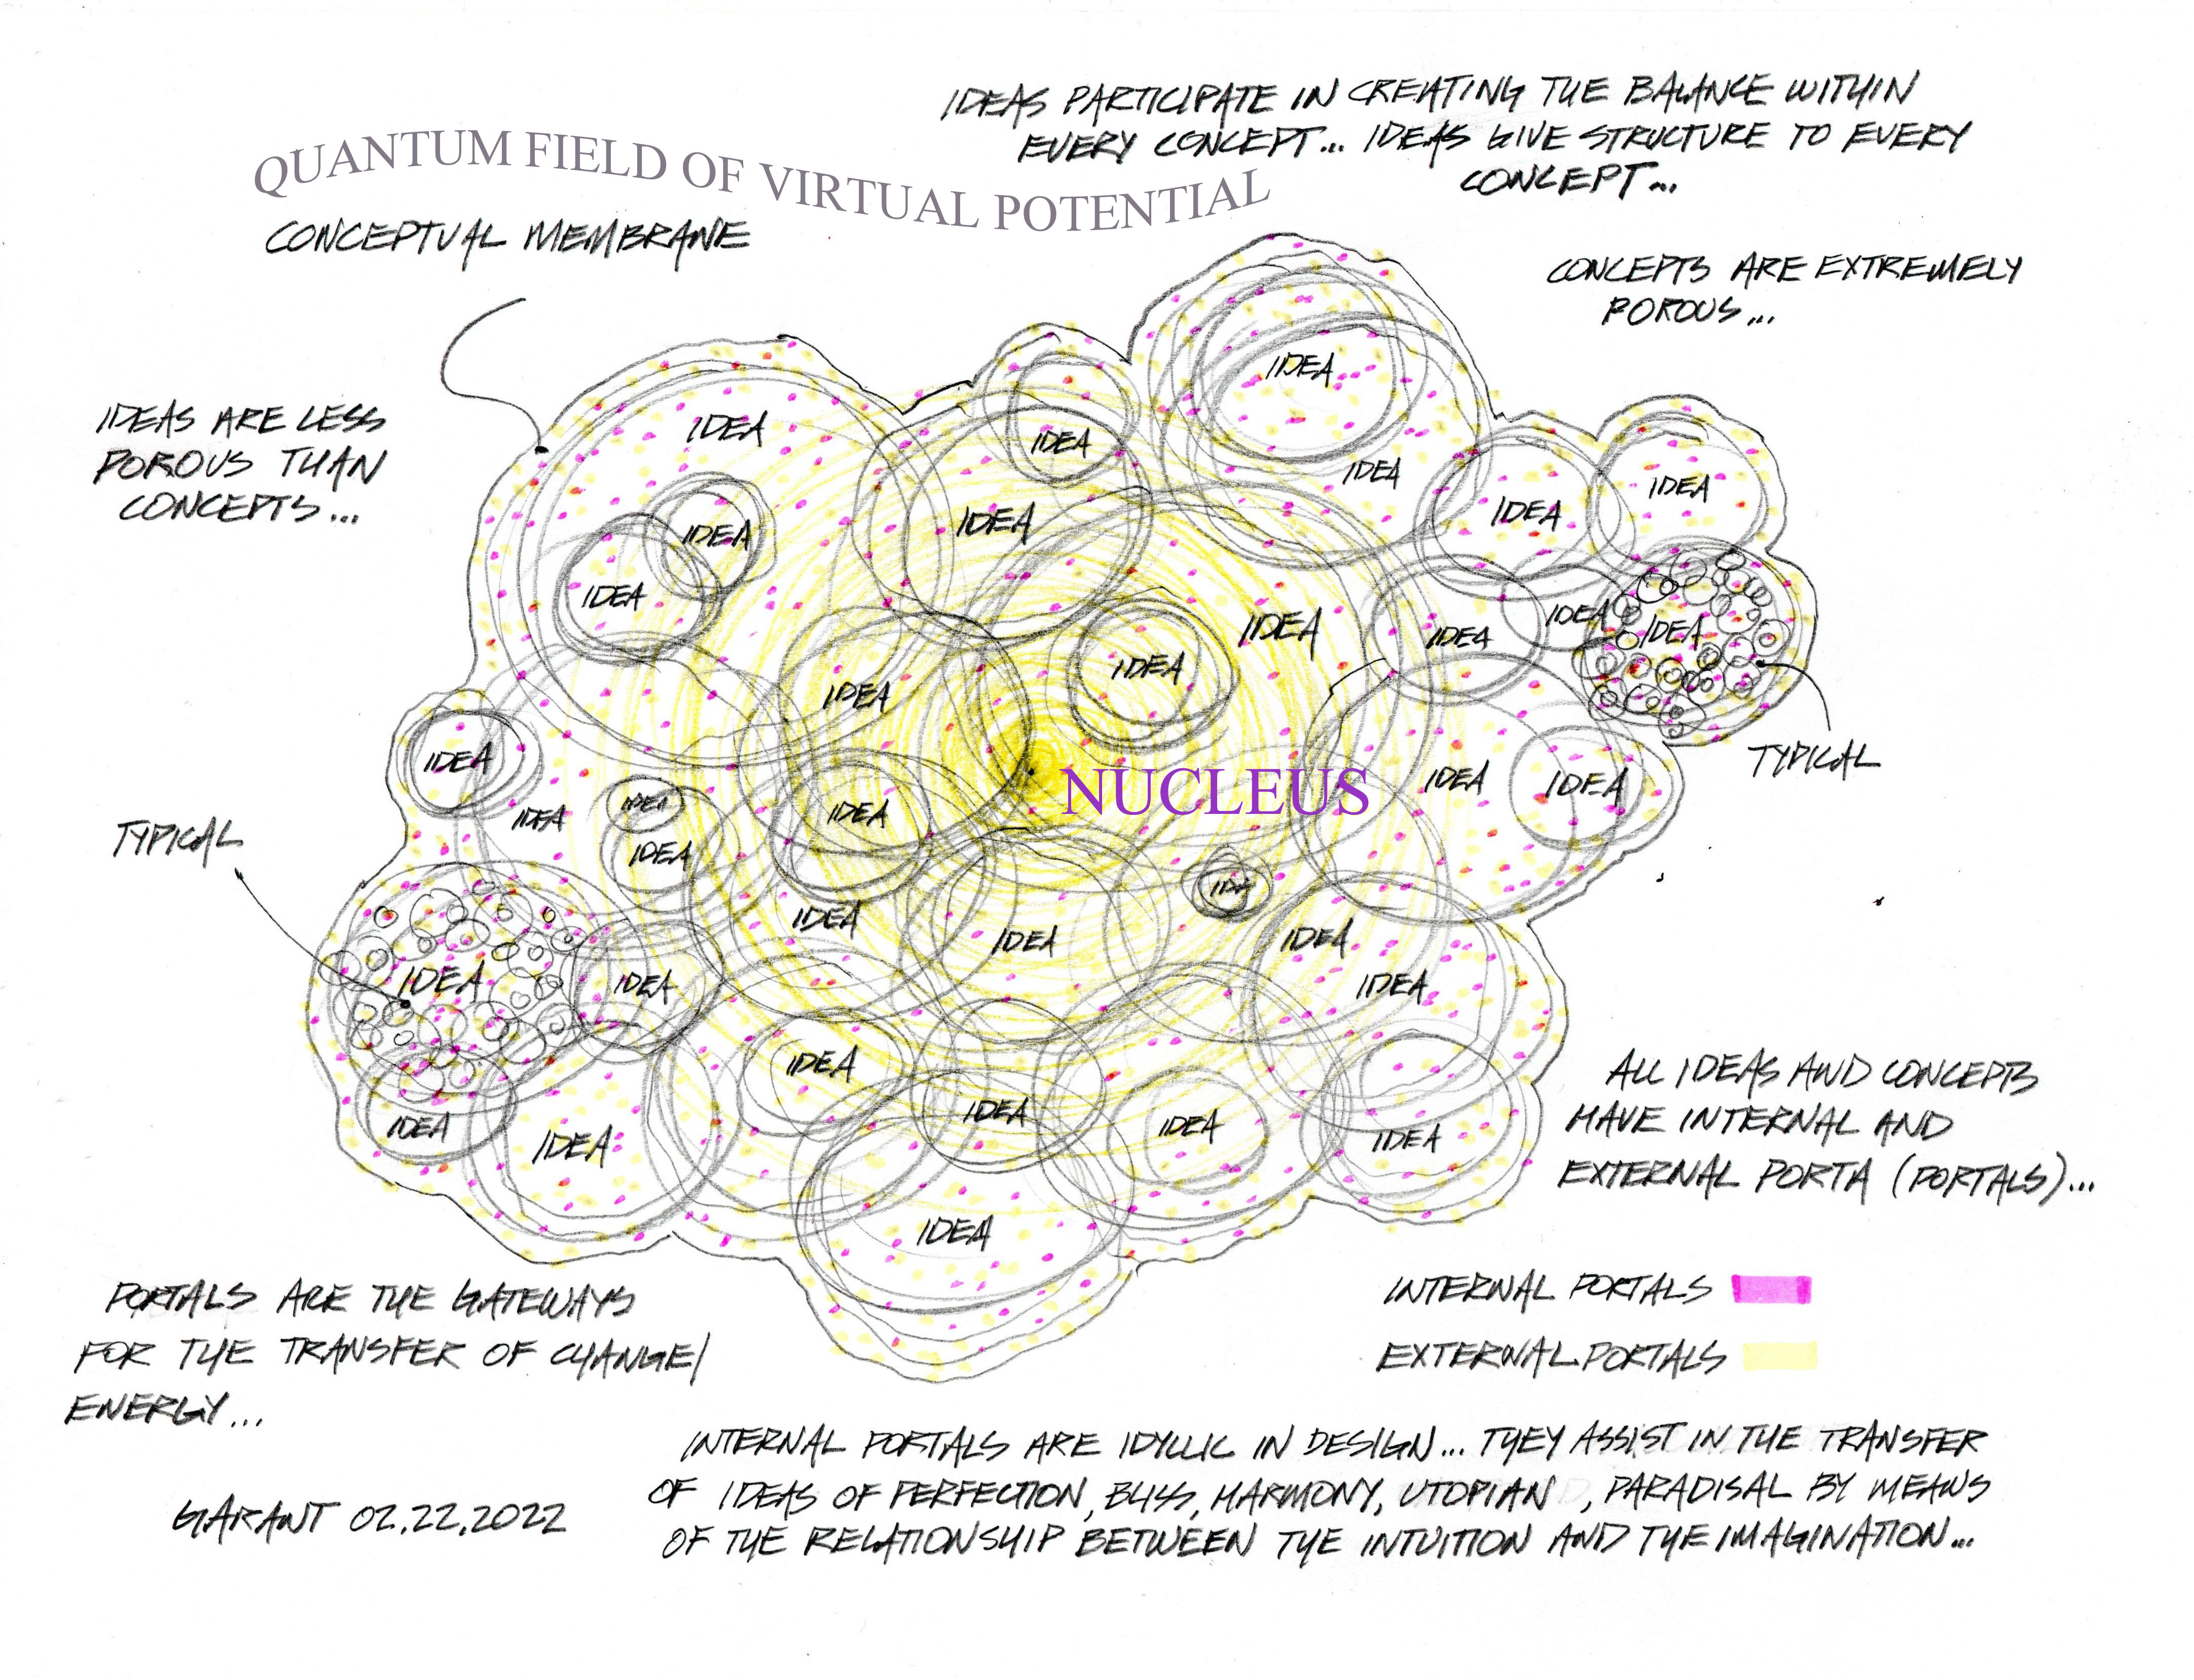 IDEAS PARTICIPATE IN CREATING THE BALANCE WITHIN
EVERY CONCEPT... IDEAS GIVE STRUCTURE TO EVERY
CONCEPT...
QUANTUM FIELD OF VIRTUAL POTENTIAL
CONCEPTUAL MEMBRANE
CONCEPTS ARE EXTREMELY
POROUS...
IDEAS ARE LESS
POROUS THAN
CONCEPTS...
IDEA
IDEA
IDEA
IDEA
IDEA
IDEA
IDEA
IDEA
IDEA
IDEA
IDEA
IDEA
IDEA
IDEA
IDEA
IDEA
IDEA
IDEA
TYPICAL
NUCLEUS
IDEA
IDEA
IDEA
IDEA
IDEA
IDEA
TYPICAL
IDEA
IDEA
IDEA
IDEA
IDEA
IDEA
IDEA
IDEA
IDEA
IDEA
IDEA
IDEA
IDEA
IDEA
ALL IDEAS AND CONCEPTS
HAVE INTERNAL AND
EXTERNAL PORTA (PORTALS)...
PORTALS ARE THE GATEWAYS
FOR THE TRANSFER OF CHANGE/
ENERGY...
INTERNAL PORTALS
EXTERNAL PORTALS
INTERNAL PORTALS ARE IDYLLIC IN DESIGN... THEY ASSIST IN THE TRANSFER
OF IDEAS OF PERFECTION, BLISS, HARMONY, UTOPIAN , PARADISAL BY MEANS
OF THE RELATIONSHIP BETWEEN THE INTUITION AND THE IMAGINATION...
GARANT 02.22.2022